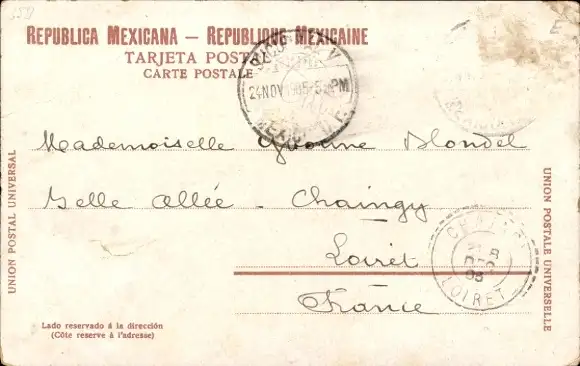 REPUBLICA MEXICANA — REPUBLIQUE MEXICAINE
TARJETA POSTAL
CARTE POSTALE
24 NOV 5-PM
MEXICO
Mademoiselle Yvonne Blondel
Belle Allée - Chaingy
Loiret
France
CHAINGY
DEC
05
LOIRET
UNION POSTAL UNIVERSAL
UNION POSTALE UNIVERSELLE
Lado reservado á la dirección
(Côte reserve à l'adresse)